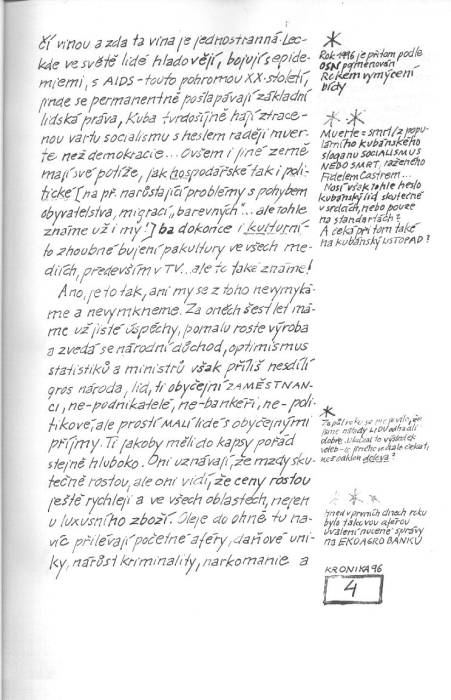 čí vinou a zda ta vina je jednostranná. Lec-
kde ve světě lidé hladovějí, bojují s epide-
miemi, s AIDS - touto pohromou XX. století,
jinde se permanentně pošlapávají základní
lidská práva, Kuba tvrdošíjně hájí ztrace-
nou vartu socialismu s heslem raději muer-
te než demokracie... Ovšem i jiné země
mají své potíže, jak hospodářské tak i poli-
tické [na př. narůstající problémy s pohybem
obyvatelstva, migrací „barevných"... ale tohle
známe už i my!] ba dokonce i kulturní -
to zhoubné bujení pakultury ve všech me-
diích, především v TV... ale to také známe!
Ano, je to tak, ani my se z toho nevymyká-
me a nevymkneme. Za oněch šest let má-
me už jisté úspěchy, pomalu roste výroba
a zvedá se národní důchod, optimismus
statistiků a ministrů však příliš nesdílí
gros národa, lid, ti obyčejní ZAMĚSTNAN-
CI, ne-podnikatelé, ne-bankéři, ne-poli-
tikové, ale prostí MALÍ lidé s obyčejnými
příjmy. Ti jakoby měli do kapsy pořád
stejně hluboko. Oni uznávají, že mzdy sku-
tečně rostou, ale oni vidí, že ceny rostou
ještě rychleji a ve všech oblastech, nejen
u luxusního zboží. Oleje do ohně tu na-
víc přilévají početné aféry, daňové úni-
ky, nárůst kriminality, narkomanie a
Rok 1996 je přitom podle
OSN pojmenován
Rokem vymýcení
bídy
Muerte = smrt / z popu-
lárního kubánského
sloganu SOCIALISMUS
NEBO SMRT, raženého
Fidelem Castrem...
Nosí však tohle heslo
kubánský lid skutečně
v srdcích, nebo pouze
na standartách?
A čeká při tom také
na kubánský LISTOPAD?
Za půl roku se
nálady LIDU
dobře
voleb -
než odklon doleva?
Hned v prvních dnech roku
bylo takovou aférou
uvalení nucené správy
na EKOAGROBANKU
KRONIKA 96
4